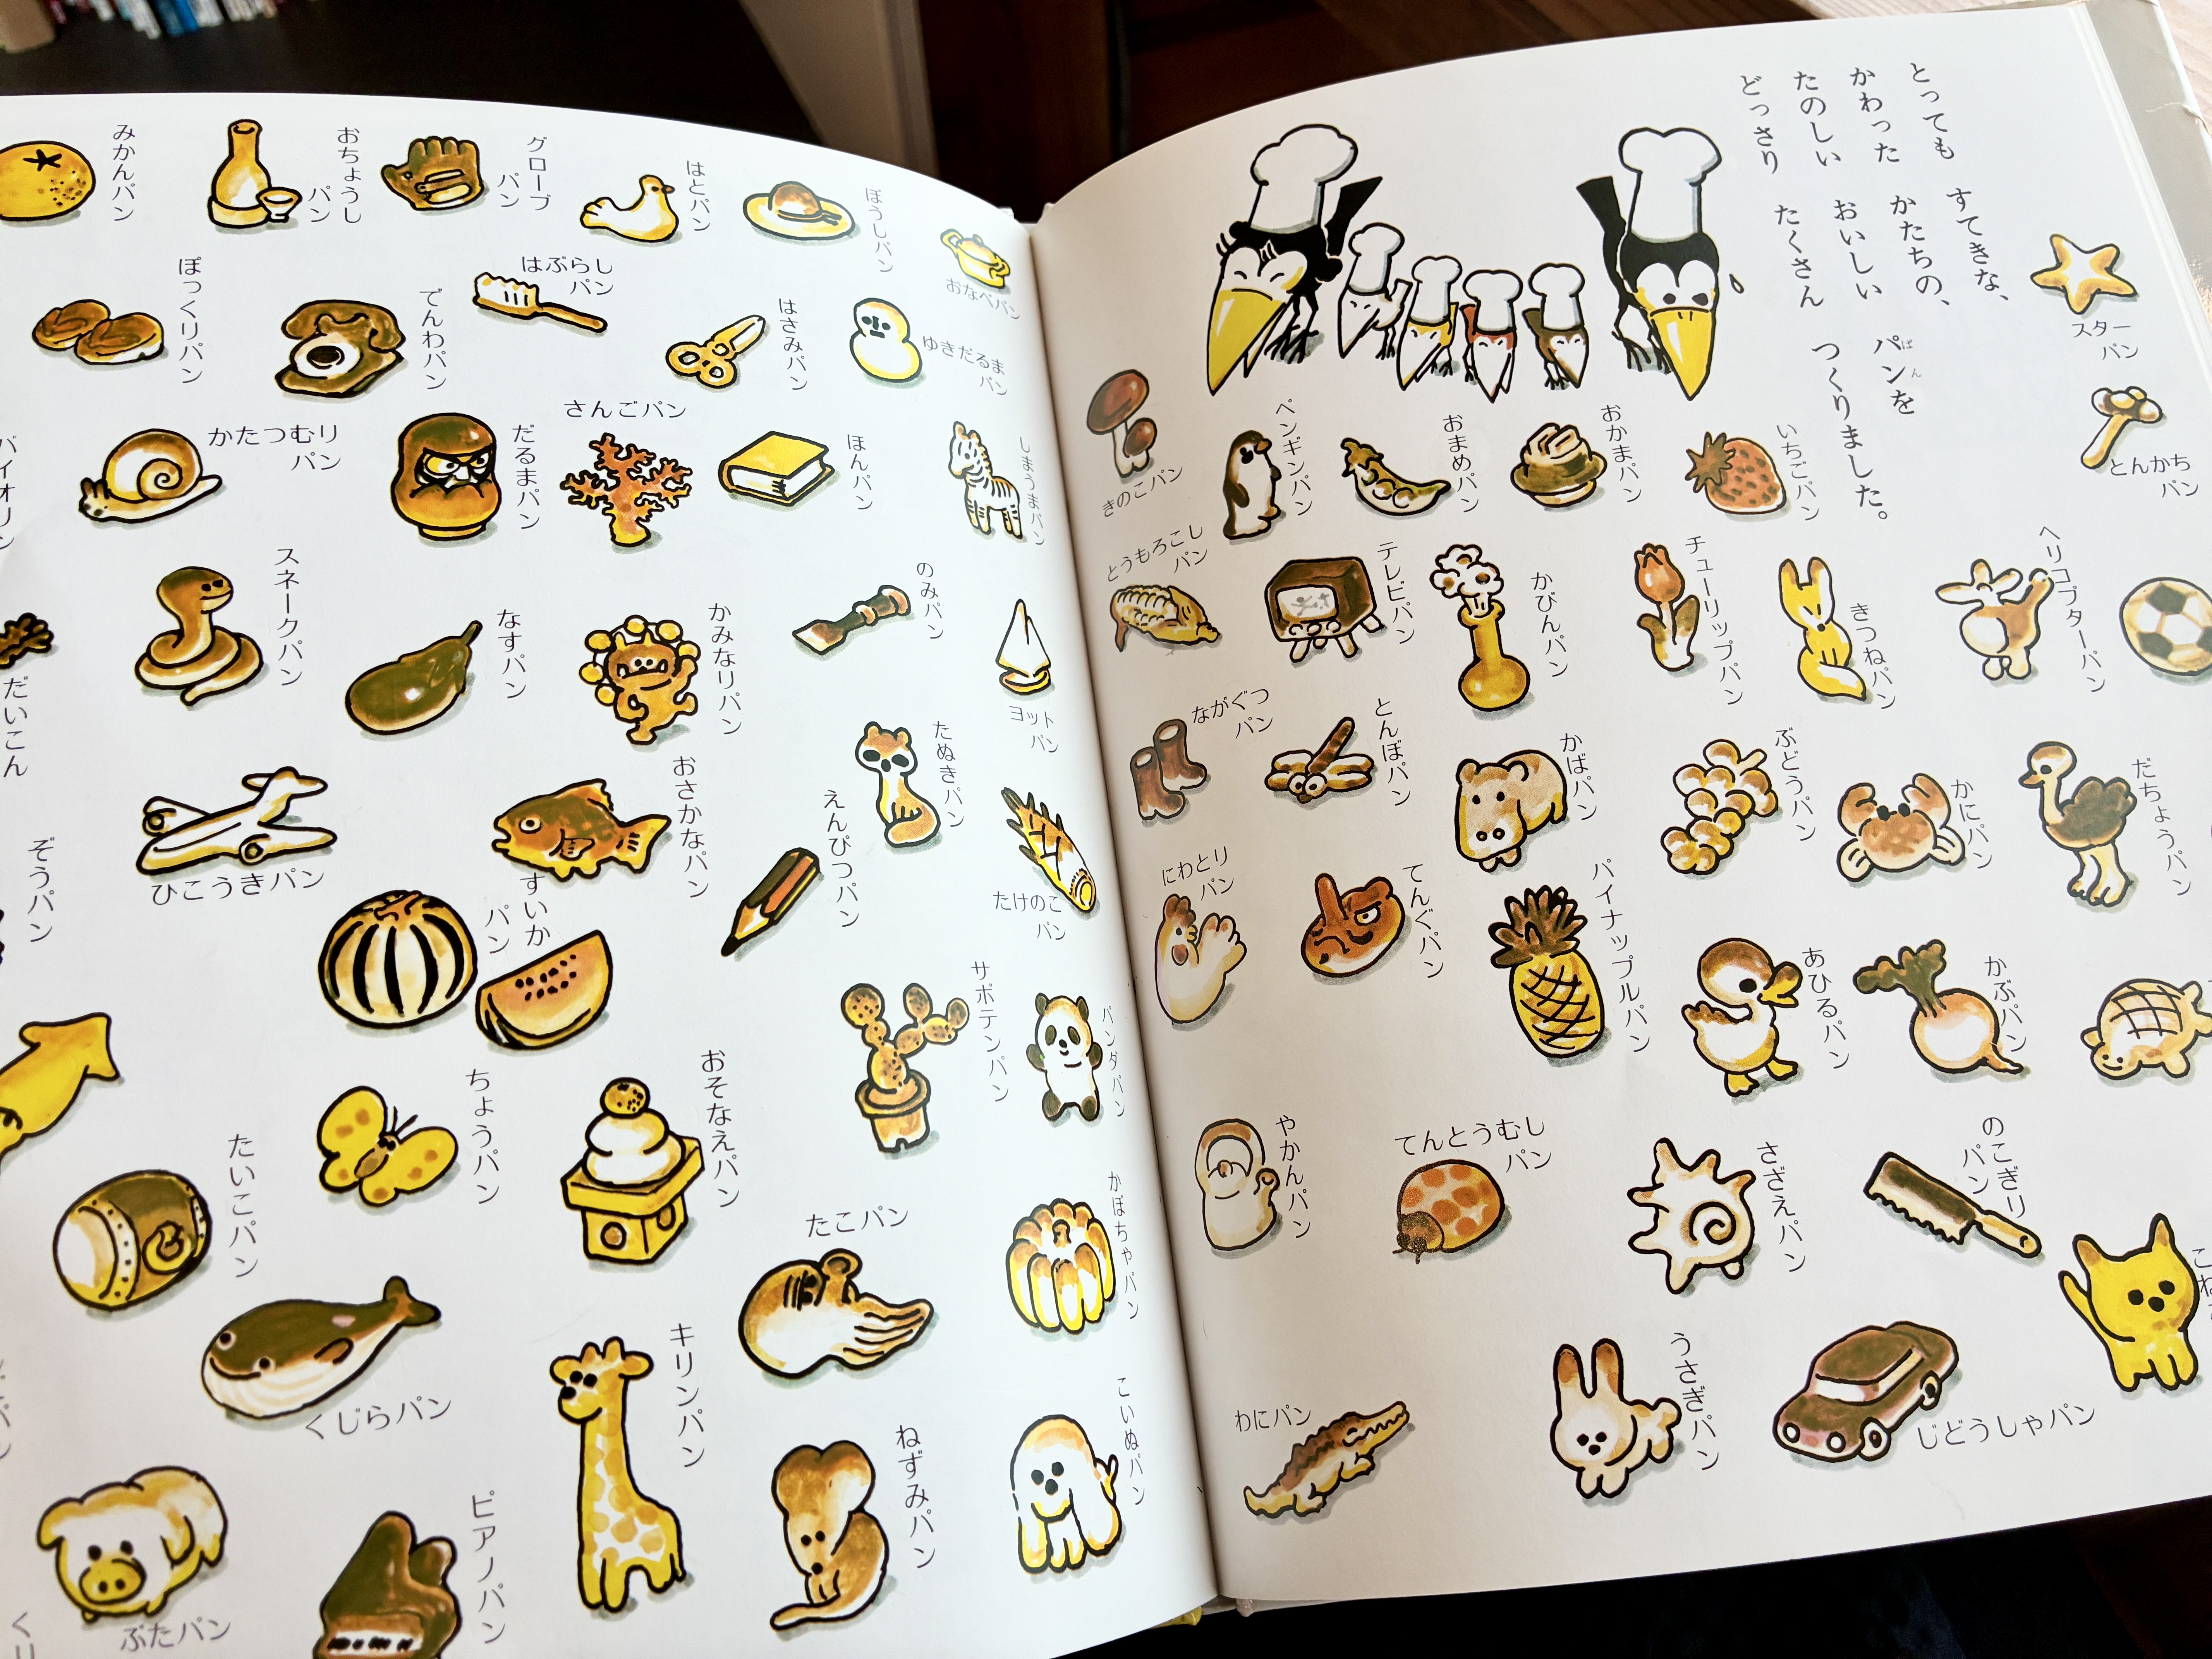 とっても すてきな、
かわった かたちの、
たのしい おいしい パンを
ぱん
どっさり たくさん つくりました。
スター
パン
とんかち
パン
きのこパン
ペンギンパン
おまめパン
おかまパン
いちごパン
とうもろこし
パン
テレビパン
かびんパン
チューリップパン
きつねパン
ヘリコプターパン
ながぐつ
パン
とんぼパン
かばパン
ぶどうパン
かにパン
だちょうパン
にわとり
パン
てんぐパン
パイナップルパン
あひるパン
かぶパン
やかんパン
てんとうむし
パン
さざえパン
のこぎり
パン
わにパン
うさぎパン
じどうしゃパン
みかんパン
おちょうし
パン
グローブ
パン
はとパン
ぼうしパン
おなべパン
ぽっくりパン
でんわパン
はぶらし
パン
はさみパン
ゆきだるま
パン
バイオリン
かたつむり
パン
だるまパン
さんごパン
ほんパン
しまうまパン
スネークパン
なすパン
かみなりパン
のみパン
ヨット
パン
だいこん
ひこうきパン
おさかなパン
えんぴつパン
たぬきパン
たけのこ
パン
ぞうパン
すいか
パン
サボテンパン
パンダパン
たいこパン
ちょうパン
おそなえパン
たこパン
かぼちゃパン
くじらパン
キリンパン
ねずみパン
こいぬパン
ぶたパン
ピアノパン